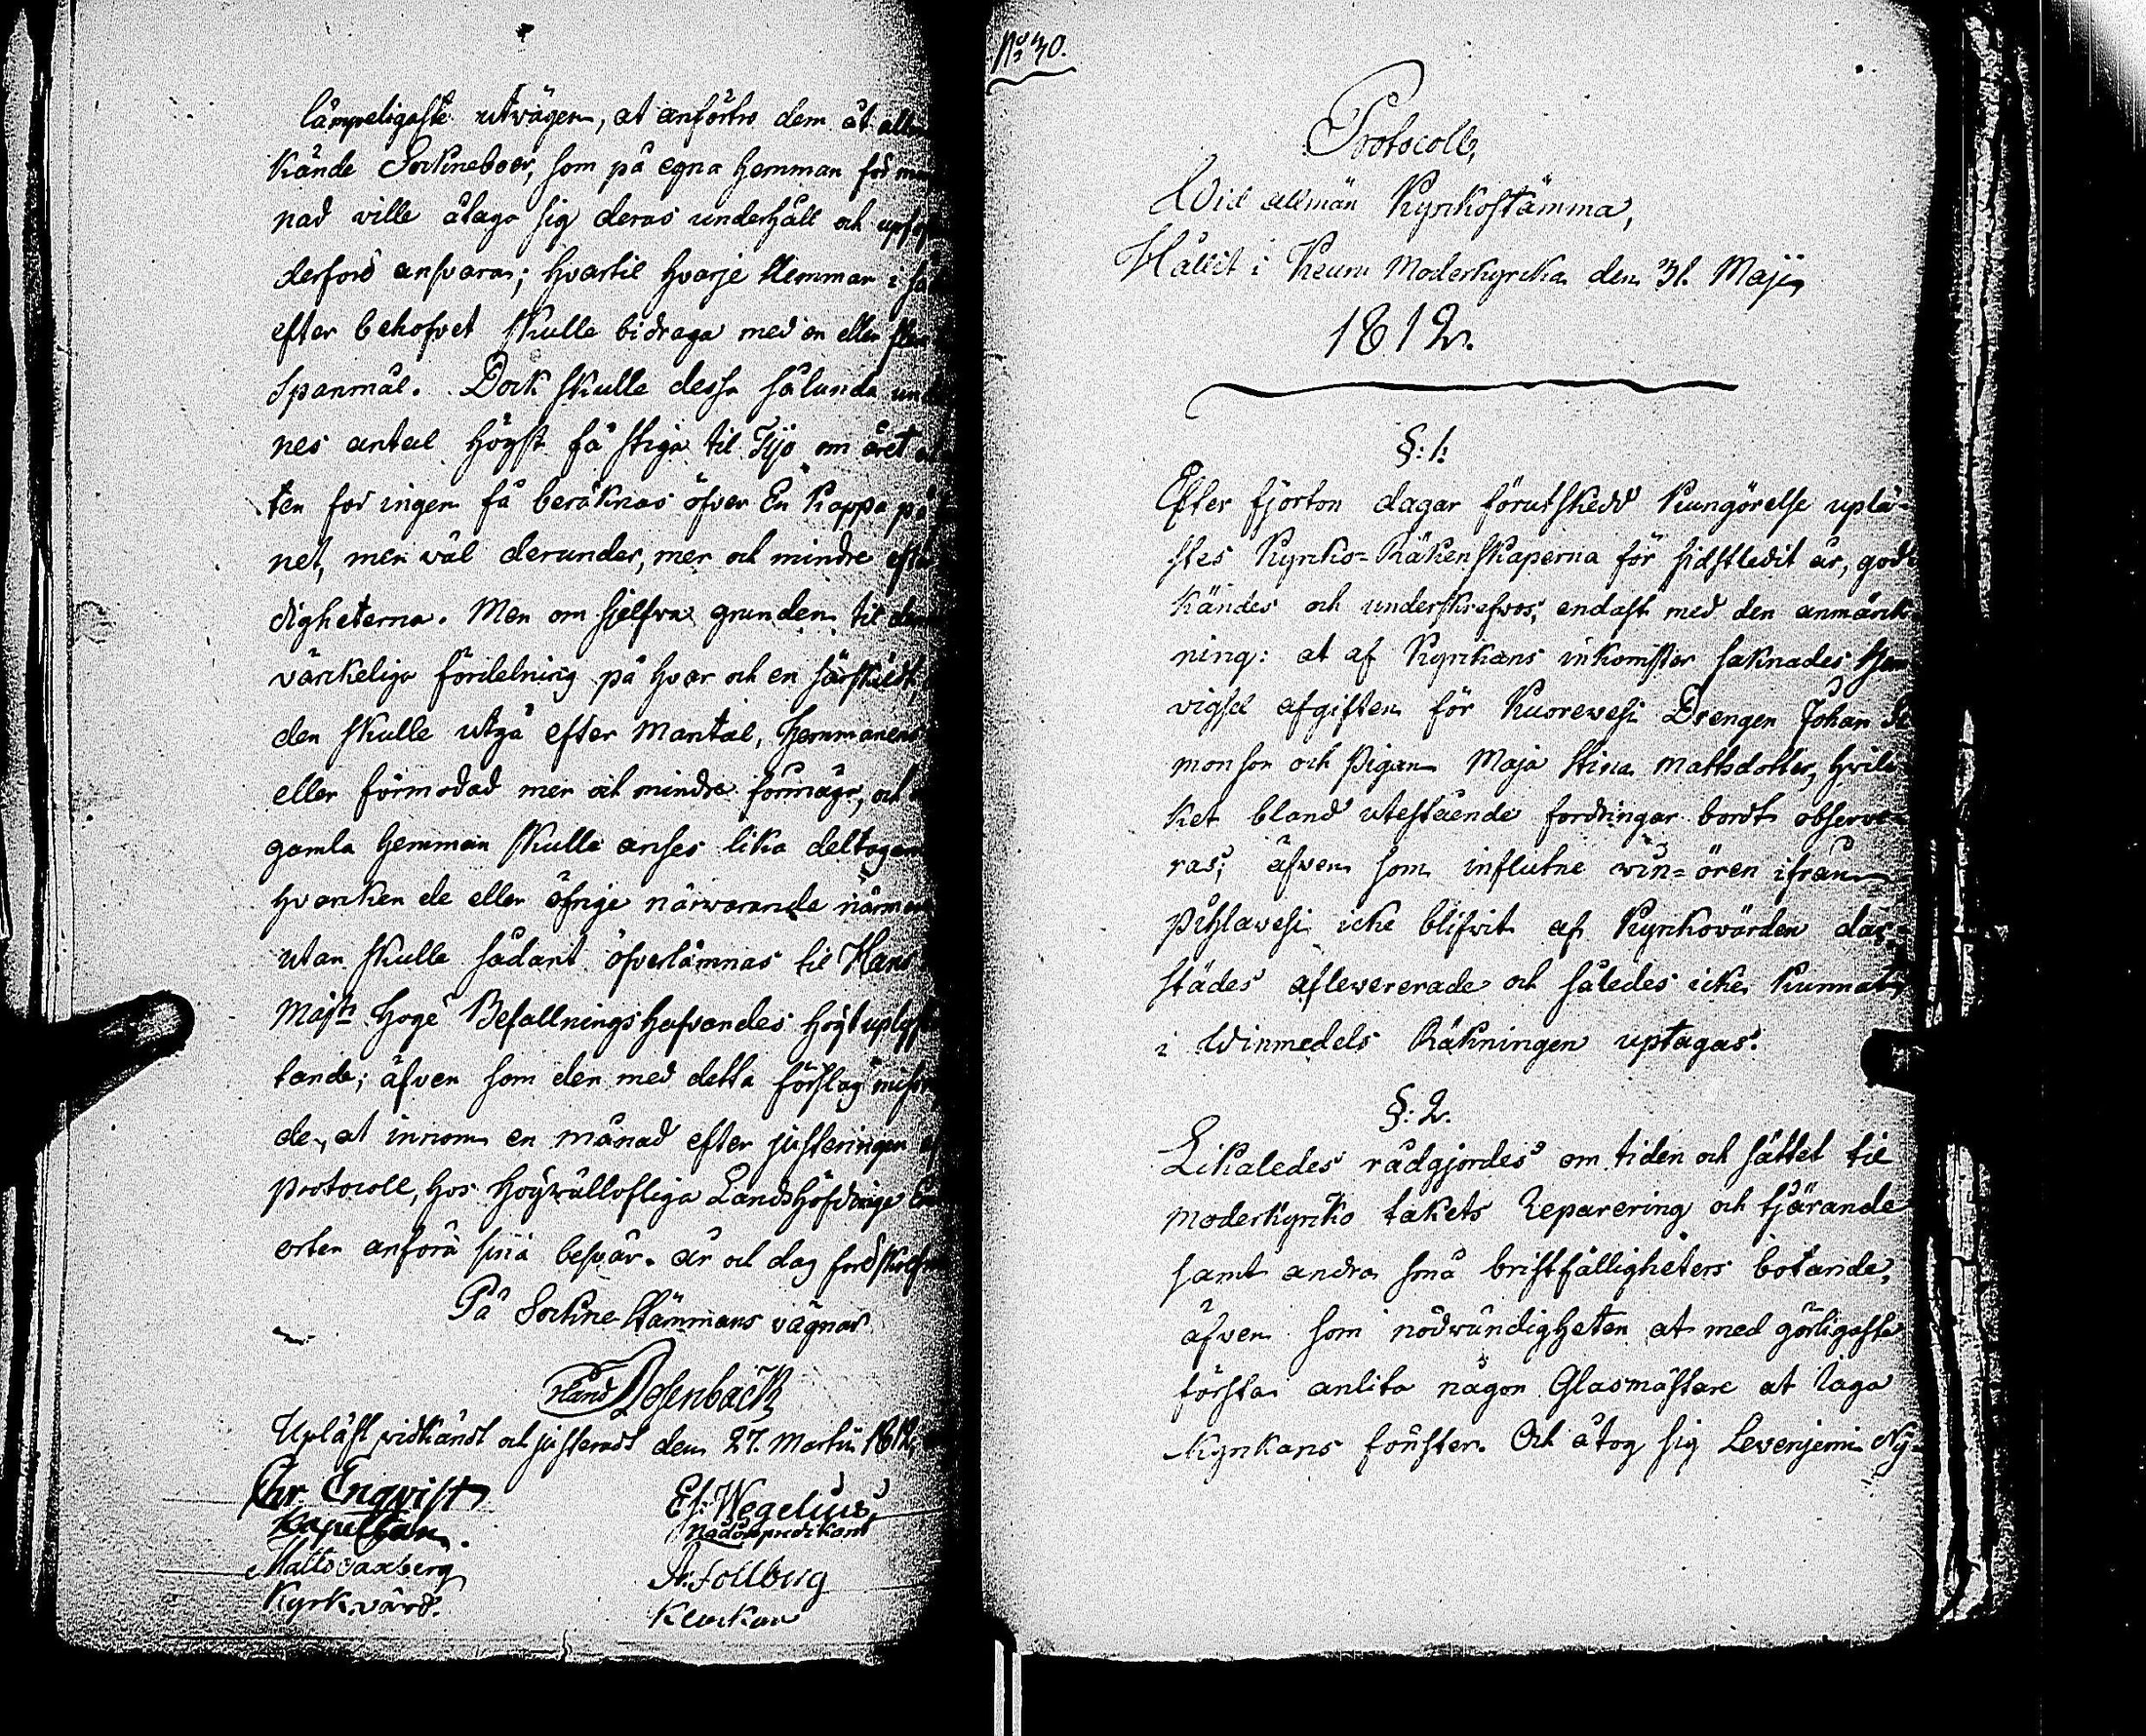 lämpeligaste utvägen, at anförtro dem åt
kände Sockneboer, som på egna hemman för
nad ville åtaga sig deras underhåll och
derföre ansvara; hvartil hvarje Hemman i
efter behofvet skulle bidraga med en eller
Spanmål. Dock skulle dessa sålunda
nes antal högst få stiga til Tijo om året
ten för ingen få beräknas öfver En Kappa på
net, men wäl derunder, mer och mindre
digheterna. Men om sjelfva grunden til
värkeliga fördelning på hvar och en särskildt,
den skulle utgå efter Mantal, Hemmanens
eller förmodad mer och mindre förmåga, och
gamla Hemman skulle anses lika
hvarken de eller öfrige närwarande
utan skulle sådant öfverlämnas til Hans
Majts Höge Befallningshafvandes högtuplyst
tande; äfven som den med detta förslag
de, at innom en månad efter justeringen af
protocoll, hos Högwällofliga Landshöfdinge
orten anföra sina besvär. År och dag
På Sockne Stämmans vägnar
Rosenback
Upläst, vidkändt och justeradt den 27. Martii 1812,
Chr Enqvist
Kapellan
Es: Wegelius,
Nådårspredikant
Matts Saxberg
Kyrkvärd.
Sollberg
Klockar
No 30.
Protocoll,
Wid allmän Kyrkostämma,
Hållit i Keuru Moderkyrka den 31. Maji
1812.
§: 1:
Efter fjorton dagar förutskedd Kungörelse uplä-
stes Kyrko-Räkenskaperna för sidstledit år, godt
kändes och underskrefvos, endast med den anmärk
ning: at af Kyrkans inkomster saknades Hem
vigsel afgiften för Kuorewesi Drengen Johan Si
monson och Pigan Maja Stina Mattsdotter, hvil-
ket bland utestående fordringar bordt observe-
ras; äfwen som influtne win-ören ifrån
Pihlawesi icke blifvit af Kyrkovärden där-
städes aflevererade och således icke kunnat
i Winmedels Räkningen uptagas.
§: 2.
Likaledes rådgjordes om tiden och sättet til
Moderkyrko takets Reparering och tjärande
samt andra små bristfälligheters botande,
äfwen som nödwändigheten at med görligaste
första anlita någon Glasmästare at laga
Kyrkans fönster. Och åtog sig Levenjemi Ny-